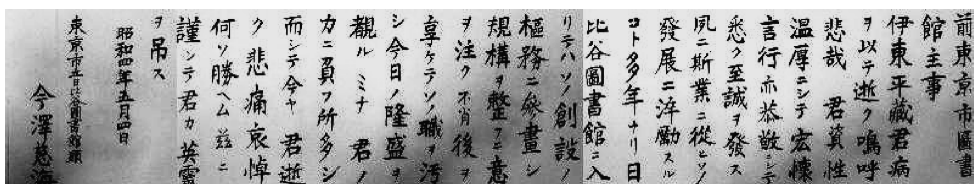 前東京市圖書
館主事
伊東平藏君病
ヲ以テ逝ク嗚呼
悲哉　君資性
温厚ニシテ宏懐
言行亦恭敬ニシテ
悉ク至誠ヲ發ス
夙ニ斯業ニ從ヒソノ
發展ニ淬勵スル
コト多年ナリ日
比谷圖書館ニ入
リテハソノ創設ノ
樞務ニ參畫シ
規構ヲ整フニ意
ヲ注ク不肖後ヲ
享ケテソノ職ヲ汚
シ今日ノ隆盛ヲ
觀ルミナ　君ノ
力ニ負フ所多シ
而シテ今ヤ　君逝
ク悲痛哀悼
何ソ勝ヘム茲ニ
謹ンテ君カ英靈
ヲ吊ス
昭和四年五月四日
東京市立日比谷圖書館頭
今澤慈海